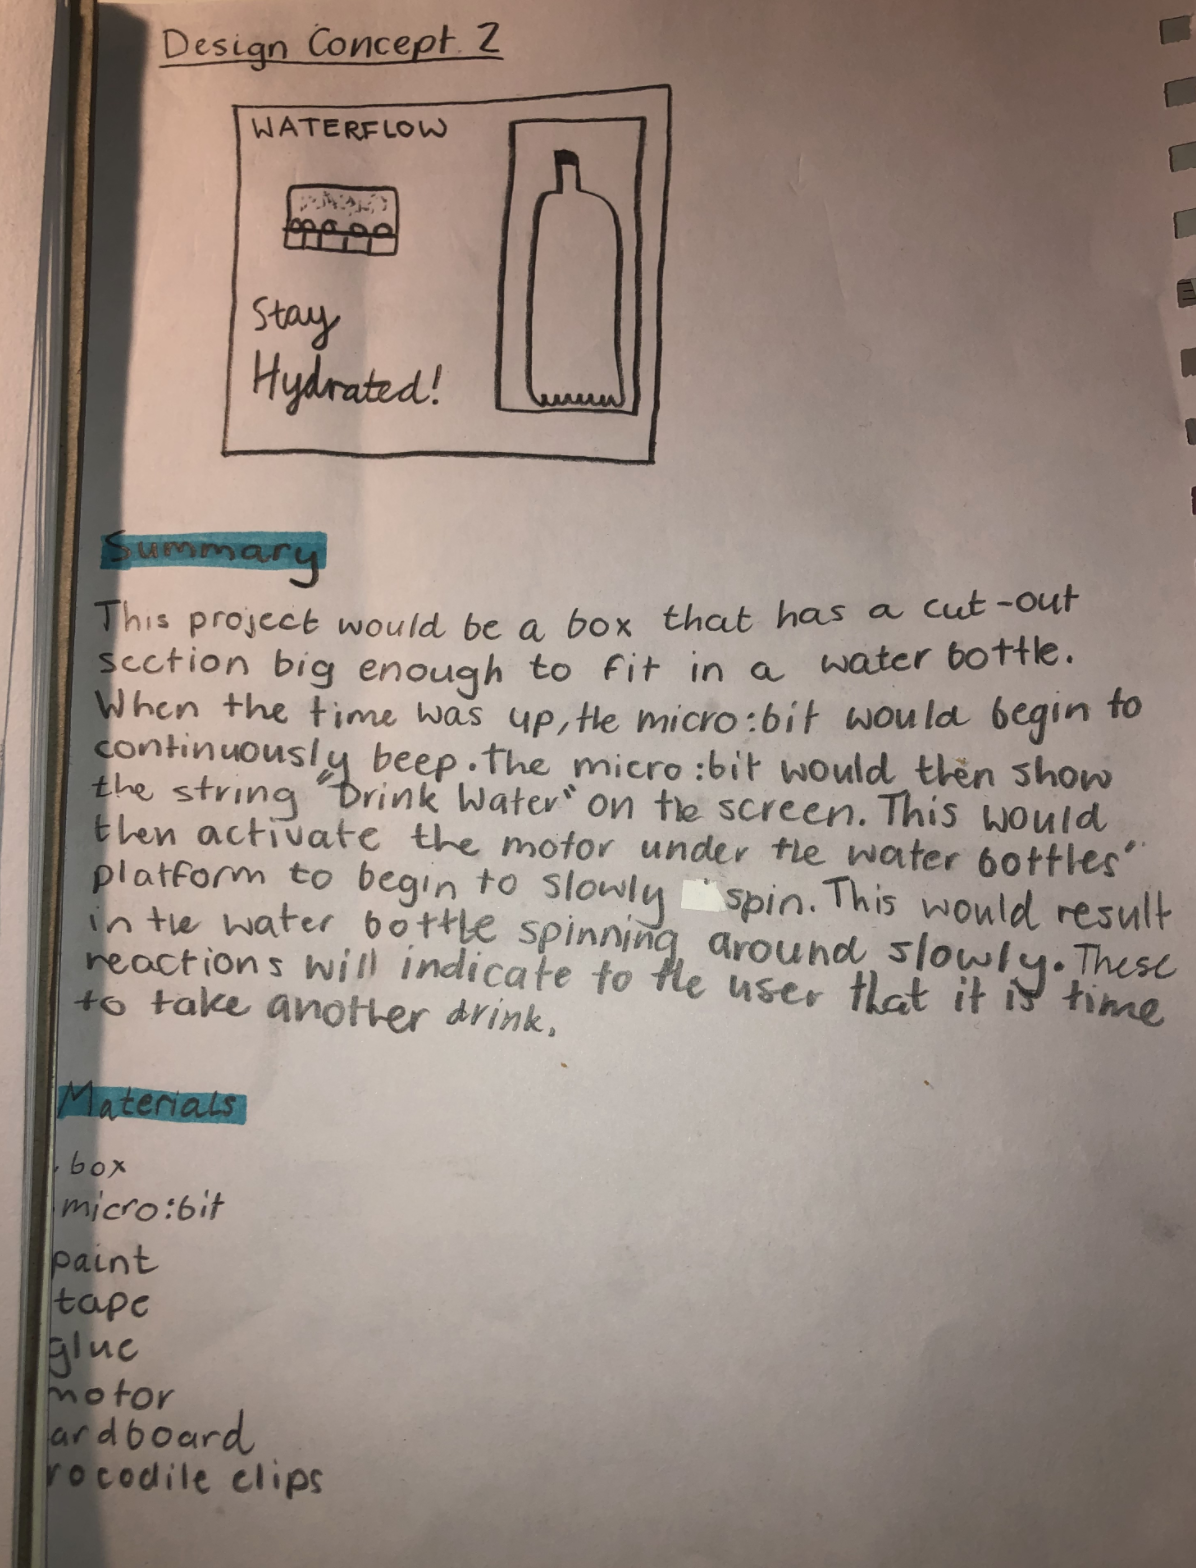 Design Concept 2
WATERFLOW
Stay
Hydrated!
Summary
This project would be a box that has a cut-out
section big enough to fit in a water bottle.
When the time was up, the micro:bit would begin to
continuously beep. The micro:bit would then show
the string "Drink Water" on the screen. This would
then activate the motor under the water bottles'
platform to begin to slowly spin. This would result
in the water bottle spinning around slowly. These
reactions will indicate to the user that it is time
to take another drink.
Materials
· box
micro:bit
paint
tape
glue
motor
ardboard
rocodile clips